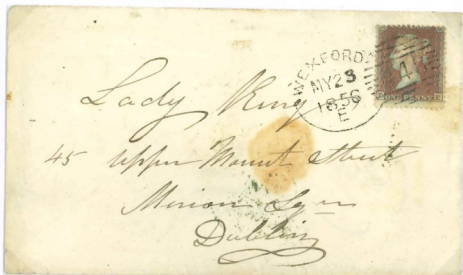 WEXFORD
MY 23
1856
E
ONE PENNY
Lady King
45 Upper Mount Street
Merrion Sqre
Dublin